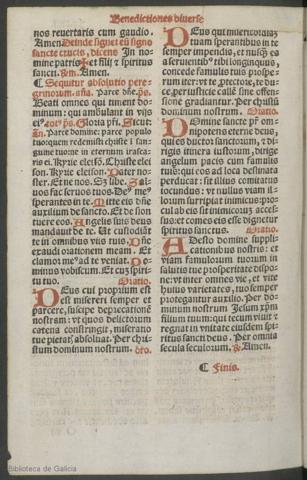 Benedictiones diverse
nos revertaris cum gaudio.
Amen Deinde signet eū signo
sancte crucis, dicens In no
mine patris ✠ et filij et spiritus
sancti. Am. Amen.
¶ Sequitur absolutio pere
grinorum. aña. Parce dñe. ps.
Beati omnes qui timent do
minum: qui ambulant in vijs
Parce domine: parce populo
tuo quem redemisti christe san
guine tuo ne in eternum irasca
ris ei. Kyrie eleisō. Christe elei
son. Kyrie eleison. Pater no
ster. Et ne nos. Sed libe. Sal
vos fac servos tuos Deꝰ meꝰ
sperantes in te. Mitte eis dñe
auxilium de sancto. Et de Sion
tuere eos. Angelis suis deus
mandavit de te. Ut custodiāt
te in omnibus viis tuis. Dñe
exaudi orationem meam. Et
clamor meꝰ ad te veniat. Do
minus vobiscum. Et cum spiri
tu tuo. Oratio.
DEus cui proprium est
est misereri semper et
parcere, suscipe deprecationē
nostram: vt quos delictorum
catena constringit, miseratio
tue pietatꝭ absolvat. Per chri
stum dominum nostrum. Oro.
DEus qui misericordiāz
tuam sperantibus in te
semper impendis, et nusq̄ ea
a servientibꝰ tibi longinquas,
concede famulis tuis prospe-
rum iter: vt te protectore, te du-
ce, per iusticie callē sine offen
sione gradiantur. Per christū
dominum nostrum. Oratio.
DOmine sancte pr̄ om-
nipotens eterne deus,
qui es ductor sanctorum, di-
rigis itinera iustorum, dirige
angelum pacis cum famulis
tuis: qui eos ad loca destinata
perducat: sit illius comitatus
iocundus: vt nullus viam il-
lorum surripiat inimicus: pro-
cul ab eis sit inimicorū acces
sus: et comes eis esse dignetur
spiritus sanctus. Oratio.
ADesto domine suppli
cationibus nostris: et
viam famulorum tuorum in
salutis tue prosperitate dispo
ne: vt inter omnes vie, et vite
huius varietates, tuo semper
protegantur auxilio. Per do-
minum nostrum Jesum xp̄m
filium tuum: qui tecum vivit et
regnat in vnitate eiusdem spi-
ritus sancti deus. Per omnia
secula seculorum. Amen.
¶ Finis.
Biblioteca de Galicia